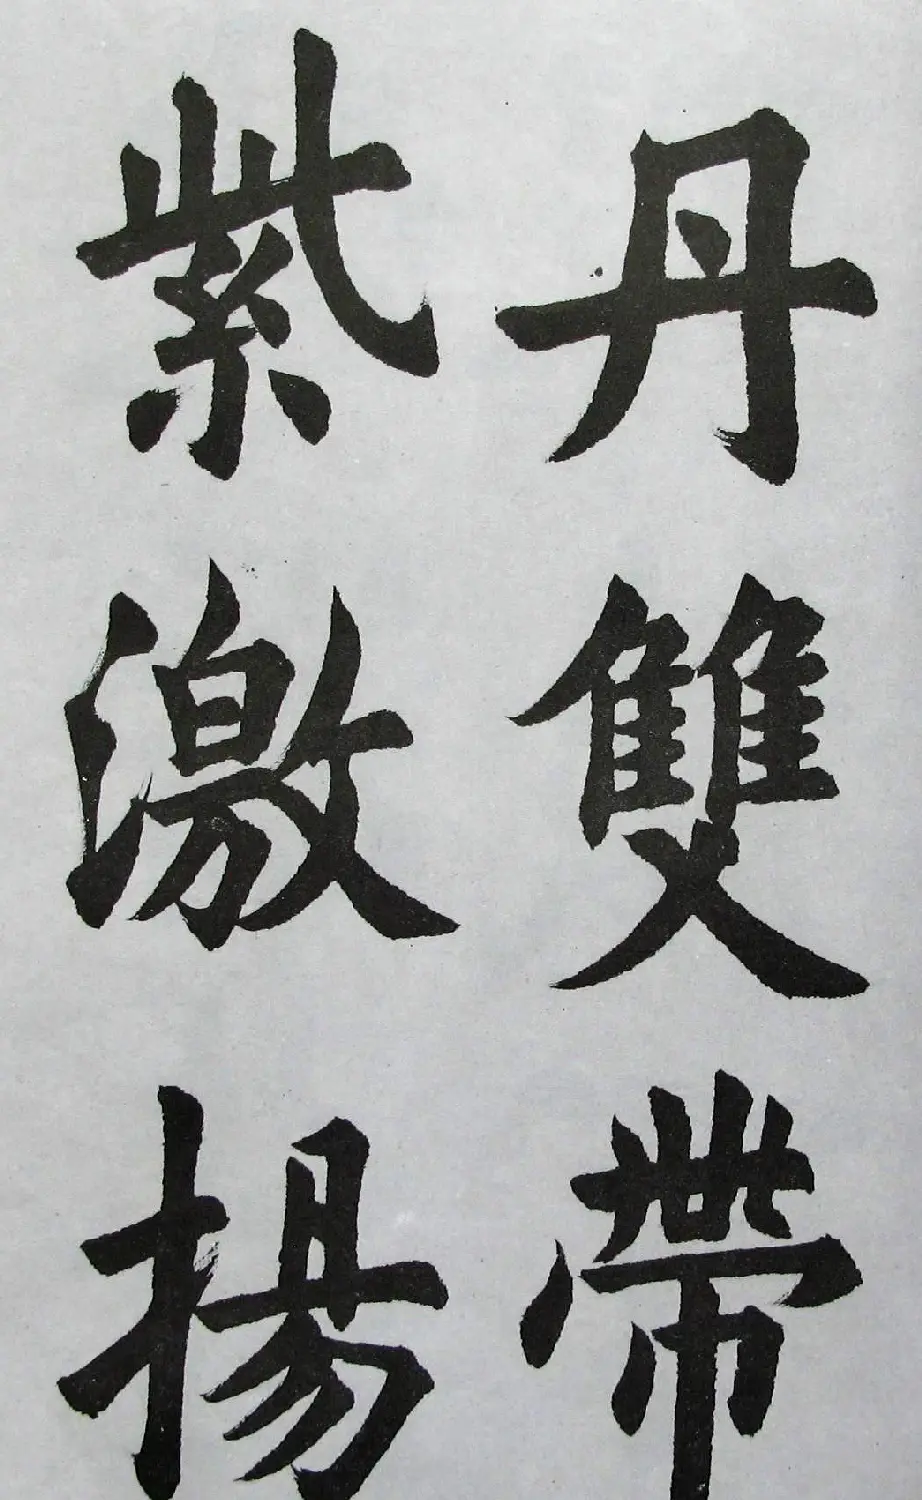 丹雙帶
紫激揚